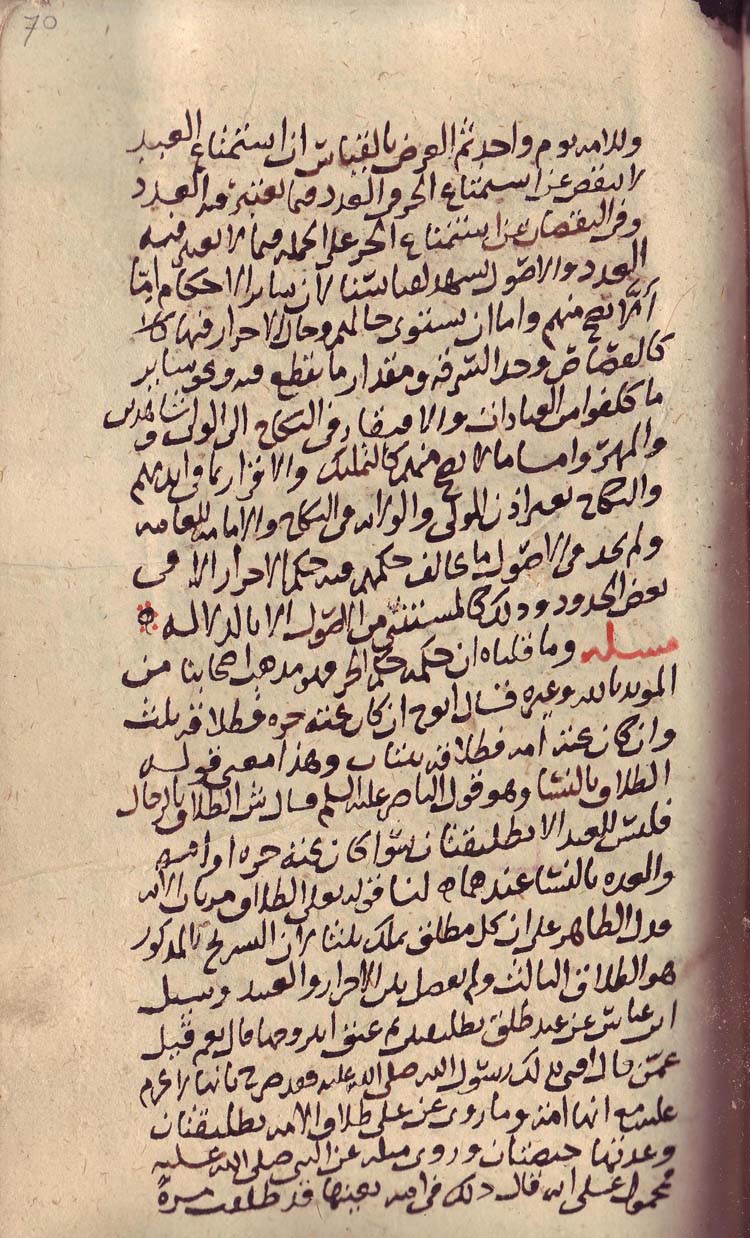 وللامة يوم واحد ثم الغرض بالقياس ان استمتاع العبد
لا ينقص عن استمتاع الحر في العدد فيما يعتبر فيه العدد
وفي النقصان عن استمتاع الحر على الجملة فيما لا يعتبر فيه
العدد والاصول تشهد لقياسنا لان ساير الاحكام اما
ألا تصح منهم واما ان يستوى حالهم وحال الاحرار فيها
كالقصاص وحد السرقة ومقدار ما يقطع فيه ونحو ساير
ما كلفوا من العبادات والافتقار في النكاح الى الولى وشاهدين
والمهر واما ما لا يصح منهم كالتمليك والاقرار بما في ايديهم
والنكاح بغير اذن المولى والولاية في النكاح والامامة للعامة
ولم نجد في الاصول ما يخالف حكمهم فيه حكم الاحرار الا في
بعض الحدود وذلك كالمستثنى من الاصول الا بالدلالة
مسئلة وما قلناه ان حكمه حكم الحر فهو مذهب اصحابنا من
المويد بالله وغيره قال ابوح ان كان تحته حرة فطلاقه ثلث
وان كان تحته أمة فطلاقه ثنتان وهذا معنى قوله
الطلاق بالنسا وهو قول الناصر عليه السلم قال ش الطلاق بالرجال
فليس للعبد الا تطليقتان سوا كان تحته حرة او امة
والعدة بالنسا عندهما لنا قوله تعلى الطلاق مرتان الآية
فدل الظاهر على ان كل مطلق يملك ثلثا لان التسريح المذكور
هو الطلاق الثالث ولم يفصل بين الاحرار والعبيد وسيل
ابن عباس عن عبد طلق تطليقتين ثم عتق ايتزوجها قال نعم قيل
عمن قال افتى بذلك رسول الله صلى الله عليه فقد صرح بانها لا تحرم
عليه مع انها امة وما روى عن على طلاق الامة تطليقتان
وعدتها حيضتان وروى مثله عن النبي صلى الله عليه
محمول على انه قال ذلك في امة بعينها قد طلقت مرة